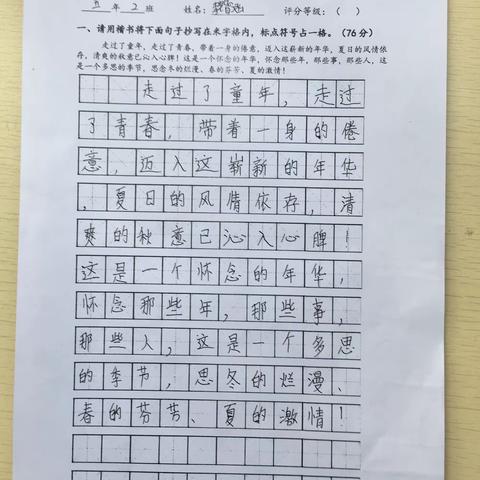 五 年 2 班 姓名： 评分等级：（ ）
一、请用楷书将下面句子抄写在米字格内，标点符号占一格。（76分）
走过了童年，走过了青春，带着一身的倦意，迈入这崭新的年华，夏日的风情依
存，清爽的秋意已沁入心脾！这是一个怀念的年华，怀念那些年，那些事，那些人，这
是一个多思的季节，思念冬的烂漫、春的芬芳、夏的激情！
走过了童年，走过
了青春，带着一身的倦
意，迈入这崭新的年华
，夏日的风情依存，清
爽的秋意已沁入心脾！
这是一个怀念的年华，
怀念那些年，那些事，
那些人，这是一个多思
的季节，思冬的烂漫、
春的芬芳、夏的激情！